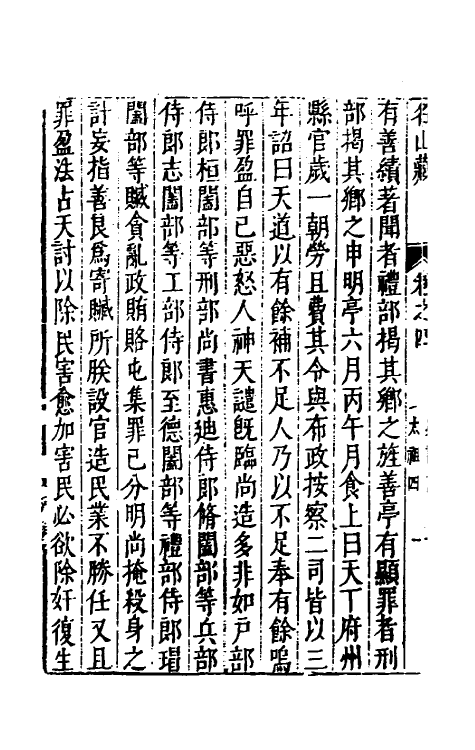 名山藏 卷之四 太祖四
有善績著聞者禮部揭其鄉之旌善亭有顯罪者刑
部揭其鄉之申明亭六月丙午月食上曰天下府州
縣官歲一朝勞且費其令與布政按察二司皆以三
年詔曰天道以有餘補不足人乃以不足奉有餘嗚
呼罪盈自己惡怒人神天譴旣臨尚造多非如戶部
侍郎桓闔部等刑部尚書惠迪侍郎脩闔部等兵部
侍郎志闔部等工部侍郎至德闔部等禮部侍郎瑁
闔部等贓貪亂政賄賂屯集罪已分明尚掩殺身之
計妄指善良爲寄贓所朕設官造民業不勝任又且
罪盈法占天討以除民害愈加害民必欲除奸復生